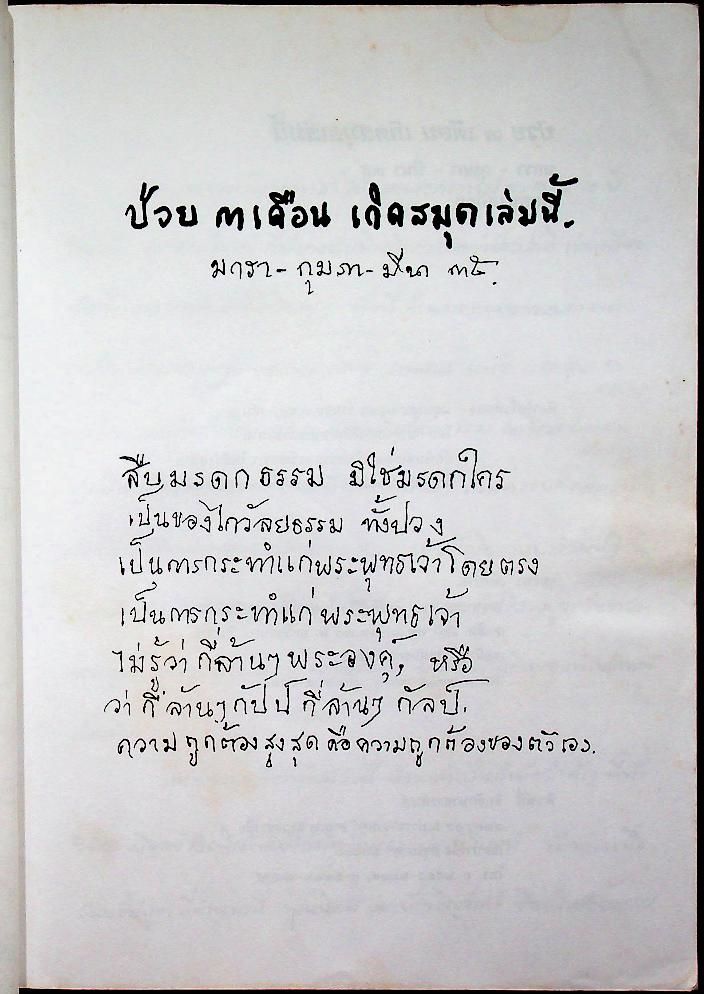 ป่วย ๓ เดือน เกิดสมุดเล่มนี้.
มกรา - กุมภา - มีนา ๓๕.
สืบมรดกธรรม มิใช่มรดกใคร
เป็นของไกวัลยธรรม ทั้งปวง
เป็นการกระทำแก่พระพุทธเจ้าโดยตรง
เป็นการกระทำแก่พระพุทธเจ้า
ไม่รู้ว่ากี่ล้านๆพระองค์, หรือ
ว่ากี่ล้านๆกัปป์ กี่ล้านๆ กัลป์.
ความถูกต้องสูงสุด คือความถูกต้องของตัวเอง.